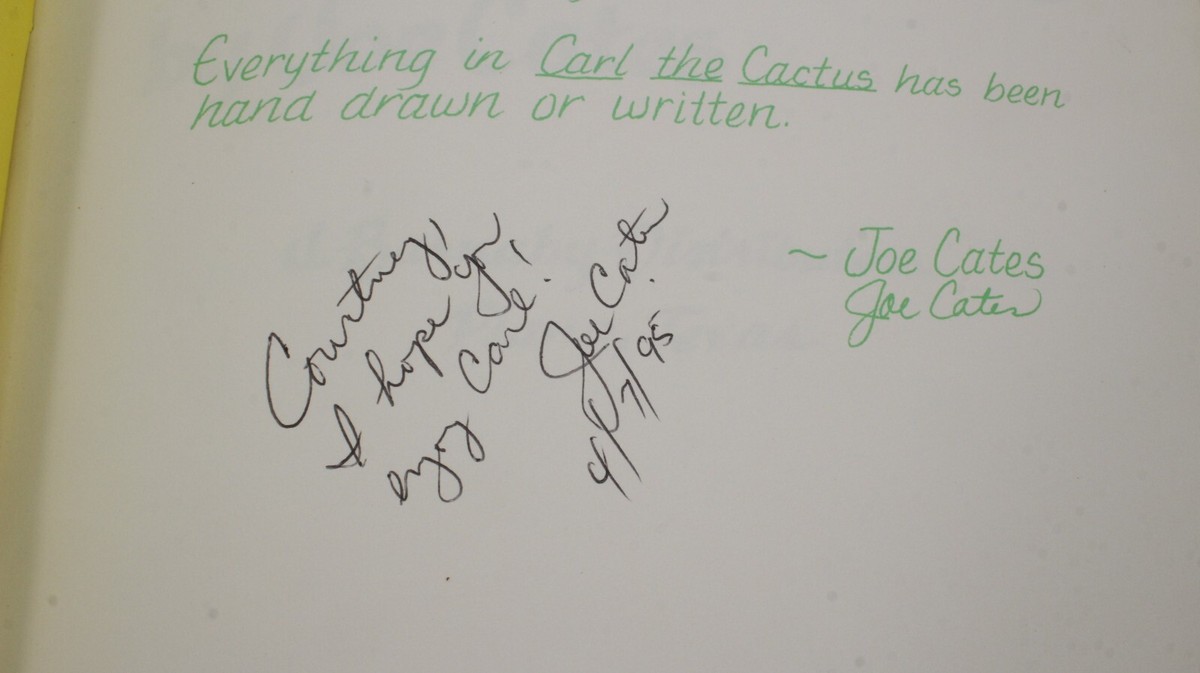 Everything in Carl the Cactus has been
hand drawn or written.
~ Joe Cates
Joe Cates
Courtney,
I hope you
enjoy Carl!
Joe Cates
4/7/95